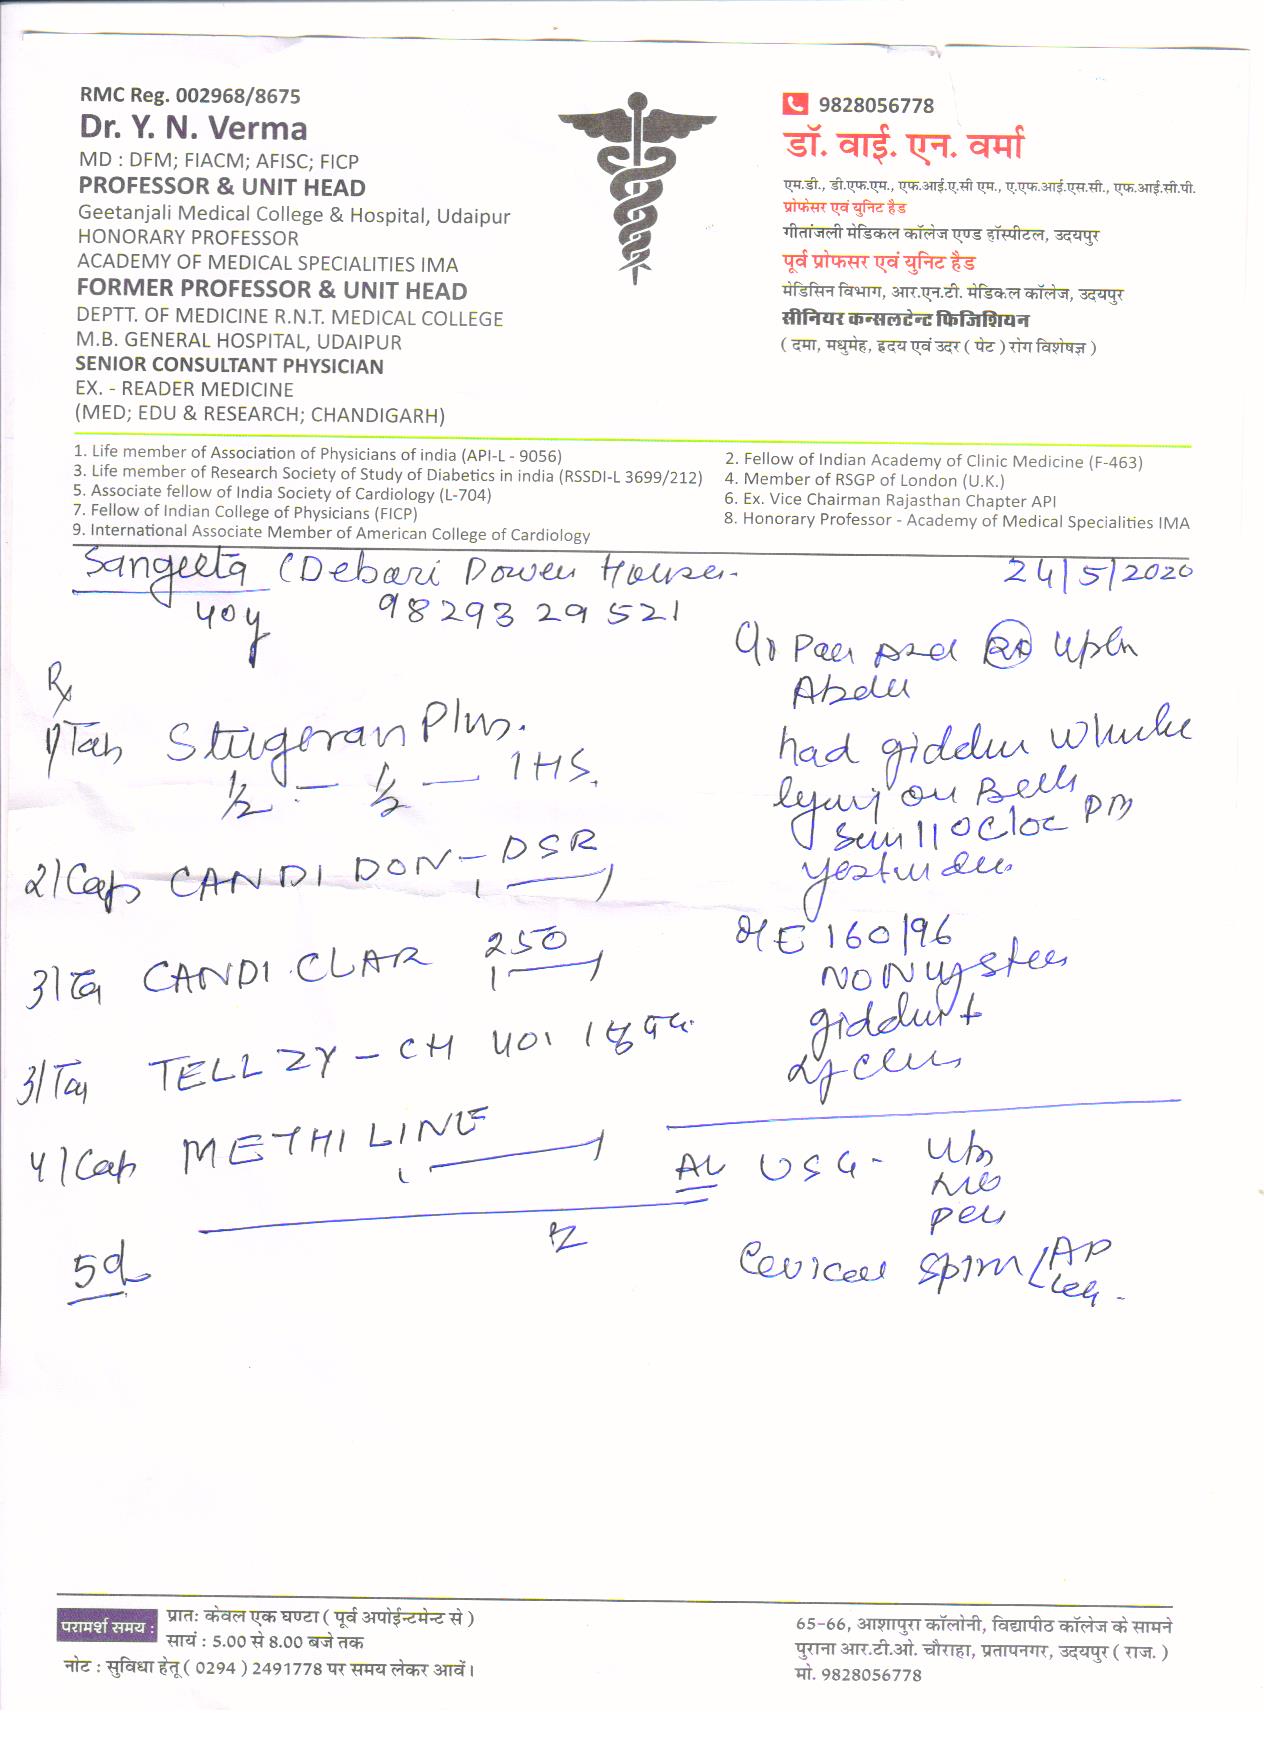 RMC Reg. 002968/8675
Dr. Y. N. Verma
MD : DFM; FIACM; AFISC; FICP
PROFESSOR & UNIT HEAD
Geetanjali Medical College & Hospital, Udaipur
HONORARY PROFESSOR
ACADEMY OF MEDICAL SPECIALITIES IMA
FORMER PROFESSOR & UNIT HEAD
DEPTT. OF MEDICINE R.N.T. MEDICAL COLLEGE
M.B. GENERAL HOSPITAL, UDAIPUR
SENIOR CONSULTANT PHYSICIAN
EX. - READER MEDICINE
(MED; EDU & RESEARCH; CHANDIGARH)
9828056778
डॉ. वाई. एन. वर्मा
एम.डी., डी.एफ.एम., एफ.आई.ए.सी एम., ए.एफ.आई.एस.सी., एफ.आई.सी.पी.
प्रोफेसर एवं युनिट हैड
गीतांजली मेडिकल कॉलेज एण्ड हॉस्पीटल, उदयपुर
पूर्व प्रोफसर एवं युनिट हैड
मेडिसिन विभाग, आर.एन.टी. मेडिकल कॉलेज, उदयपुर
सीनियर कन्सलटेन्ट फिजिशियन
( दमा, मधुमेह, ह्रदय एवं उदर ( पेट ) रोग विशेषज्ञ )
1. Life member of Association of Physicians of india (API-L - 9056)
2. Fellow of Indian Academy of Clinic Medicine (F-463)
3. Life member of Research Society of Study of Diabetics in india (RSSDI-L 3699/212)
4. Member of RSGP of London (U.K.)
5. Associate fellow of India Society of Cardiology (L-704)
6. Ex. Vice Chairman Rajasthan Chapter API
7. Fellow of Indian College of Physicians (FICP)
8. Honorary Professor - Academy of Medical Specialities IMA
9. International Associate Member of American College of Cardiology
Sangeeta (Debari Power House- 24/5/2020
40y 9829329521
Rx
1) Tab Stugeran Plus.
1/2 - 1/2 - 1 HS.
2) Cap CANDIDON-DSR
1
3) Ta CANDI.CLAR 250
1
3) Ta TELLZY-CH 40 1
4) Cap METHILINE
1
5d
C/o Pain
had giddin
lying on Bed
11 OCloc PM
O/E 160/96
NO Nystee
giddin +
Ad USG -
Cervical Spine / AP
प्रातः केवल एक घण्टा ( पूर्व अपोईन्टमेन्ट से )
परामर्श समय :
सायं : 5.00 से 8.00 बजे तक
नोट : सुविधा हेतू ( 0294 ) 2491778 पर समय लेकर आवें।
65-66, आशापुरा कॉलोनी, विद्यापीठ कॉलेज के सामने
पुराना आर.टी.ओ. चौराहा, प्रतापनगर, उदयपुर ( राज. )
मो. 9828056778